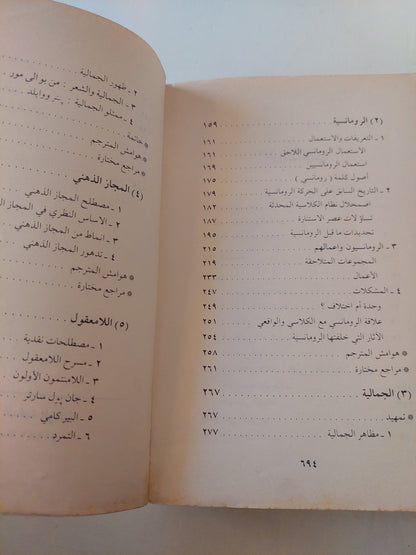 (٢) الرومانسية ١٥٩
١ - التعريفات والاستعمال ١٦١
الاستعمال الرومانسي اللاحق ١٦١
استعمال الرومانسيين ١٦٥
أصول كلمة ( رومانسي ) ١٧٥
٢ - التاريخ السابق على الحركة الرومانسية ١٧٩
اضمحلال نظام الكلاسية المحدثة ١٨٢
تساؤلات عصر الاستنارة ١٨٧
تجديدات ما قبل الرومانسية ١٩٥
٣ - الرومانسيون واعمالهم ٢١٥
المجموعات المتلاحقة ٢١٩
الأعمال ٢٣٣
٤ - المشكلات ٢٤٧
وحدة أم اختلاف ؟ ٢٤٩
علاقة الرومانسي مع الكلاسي والواقعي ٢٥١
الآثار التي خلفتها الرومانسية ٢٥٤
* هوامش المترجم ٢٥٨
* مراجع مختارة ٢٦١
(٣) الجمالية ٢٦٧
* تمهيد ٢٦٧
١ - مظاهر الجمالية ٢٧٧
٦٩٤
٢ - ظهور الجمالية
٣ - الجمالية والشعر : من بو الى مور
٤ - ممثلو الجمالية : پيتر ووايلد
* خاتمة
* هوامش المترجم
* مراجع مختارة
(٤) المجاز الذهني
١ - مصطلح المجاز الذهني
٢ - الاساس النظري في المجاز الذه
٣ - انماط من المجاز الذهني
٤ - تدهور المجاز الذهني
* هوامش المترجم
* مراجع مختارة
(٥) اللامعقول
١ - مصطلحات نقدية
٢ - مسرح اللامعقول
٣ - اللامنتمون الأولون
٤ - جان پول سارتر
٥ - البير كامي
٦ - التمرد